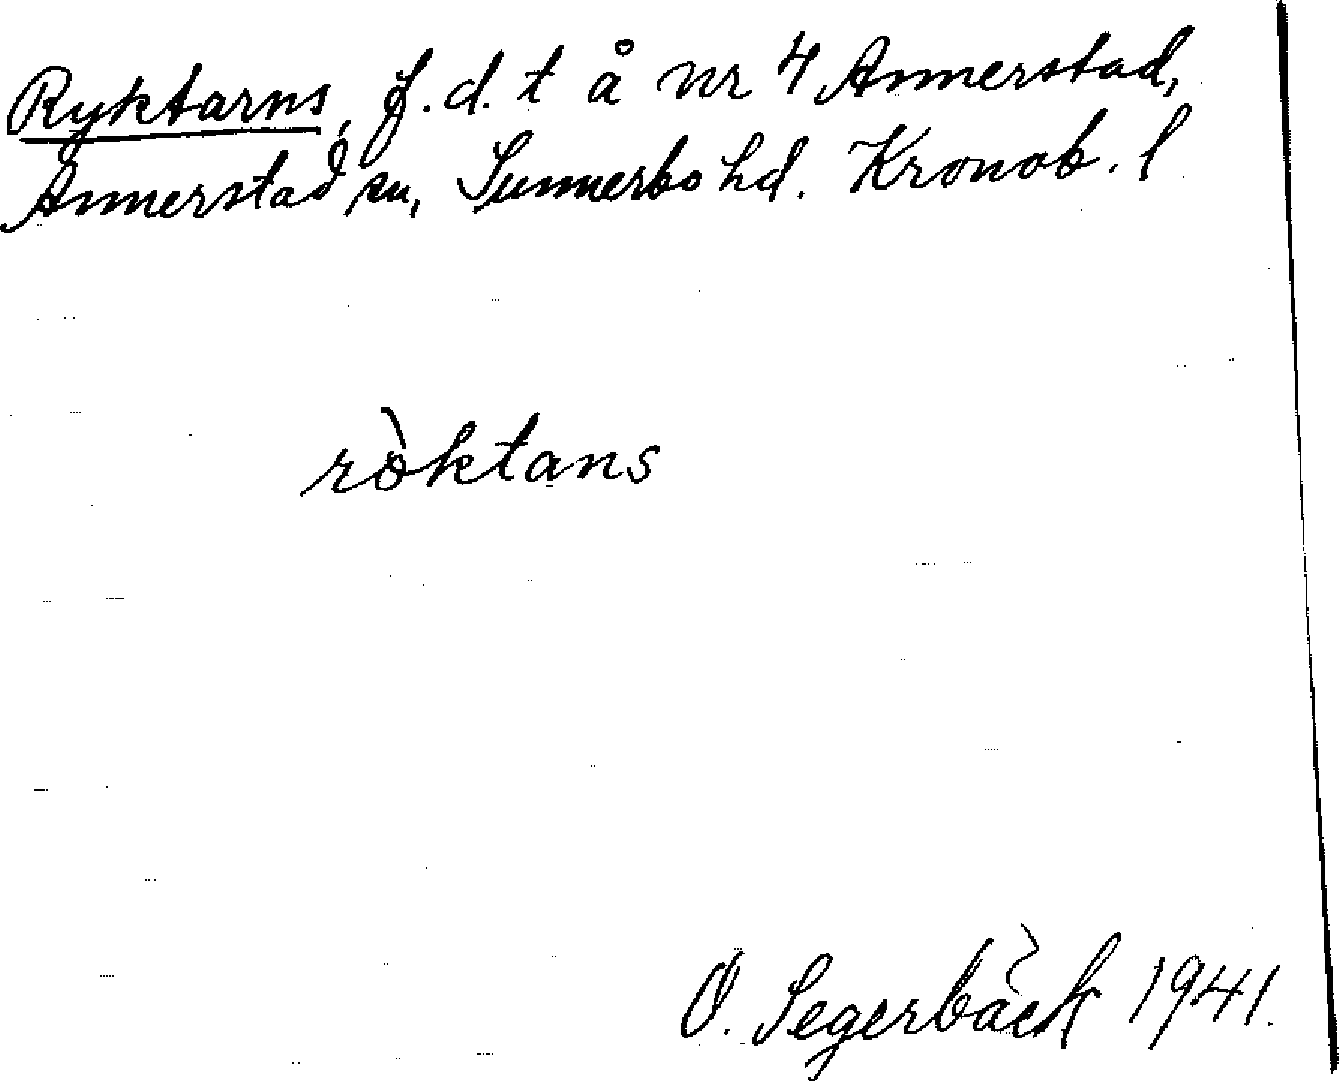 Ryktarns, f.d. t å nr 4 Annerstad,
Annerstad sn, Sunnerbo hd. Kronob. l
ròktans
O. Segerbäck 1941.